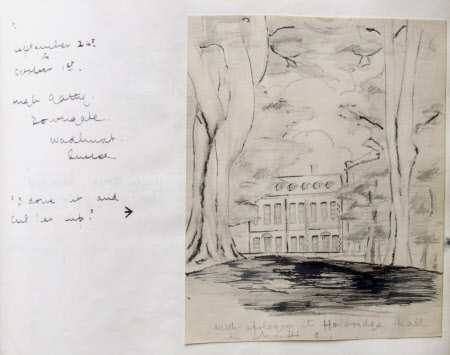 September 24th
to
October 1st.
Hugh Gatty.
Zourgate.
Wadhurst.
Sussex
"I done 'er and
cut 'er up."
with apologies to Holbridge Hall